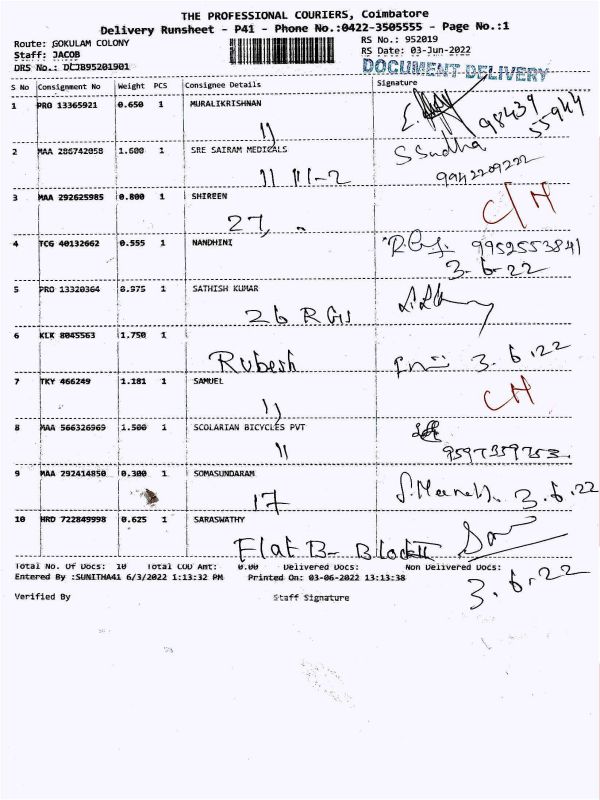 THE PROFESSIONAL COURIERS, Coimbatore
Delivery Runsheet - P41 - Phone No.:0422-3505555 - Page No.:1
Route: GOKULAM COLONY RS No.: 952019
Staff: JACOB RS Date: 03-Jun-2022
DRS No.: DLJB95201901 DOCUMENT DELIVERY
S No Consignment No Weight PCS Consignee Details Signature
1 PRO 13365921 0.650 1 MURALIKRISHNAN
98439 55944
11
2 MAA 286742058 1.600 1 SRE SAIRAM MEDICALS S Sudha
11 111-2 9942209222
3 MAA 292625985 0.800 1 SHIREEN C/H
27,
4 TCG 40132662 0.555 1 NANDHINI 9952553841
3-6-22
5 PRO 13320364 0.975 1 SATHISH KUMAR
26 RGS
6 KLK 8045563 1.750 1
Rubesh 3.6.22
7 TKY 466249 1.181 1 SAMUEL CH
11
8 MAA 566326969 1.500 1 SCOLARIAN BICYCLES PVT
11 9597359753
9 MAA 292414850 0.300 1 SOMASUNDARAM
17 3.6.22
10 HRD 722849998 0.625 1 SARASWATHY
Flat B- Block II
Total No. Of Docs: 10 Total COD Amt: 0.00 Delivered Docs: Non Delivered Docs:
Entered By :SUNITHA41 6/3/2022 1:13:32 PM Printed On: 03-06-2022 13:13:38
3.6.22
Verified By Staff Signature